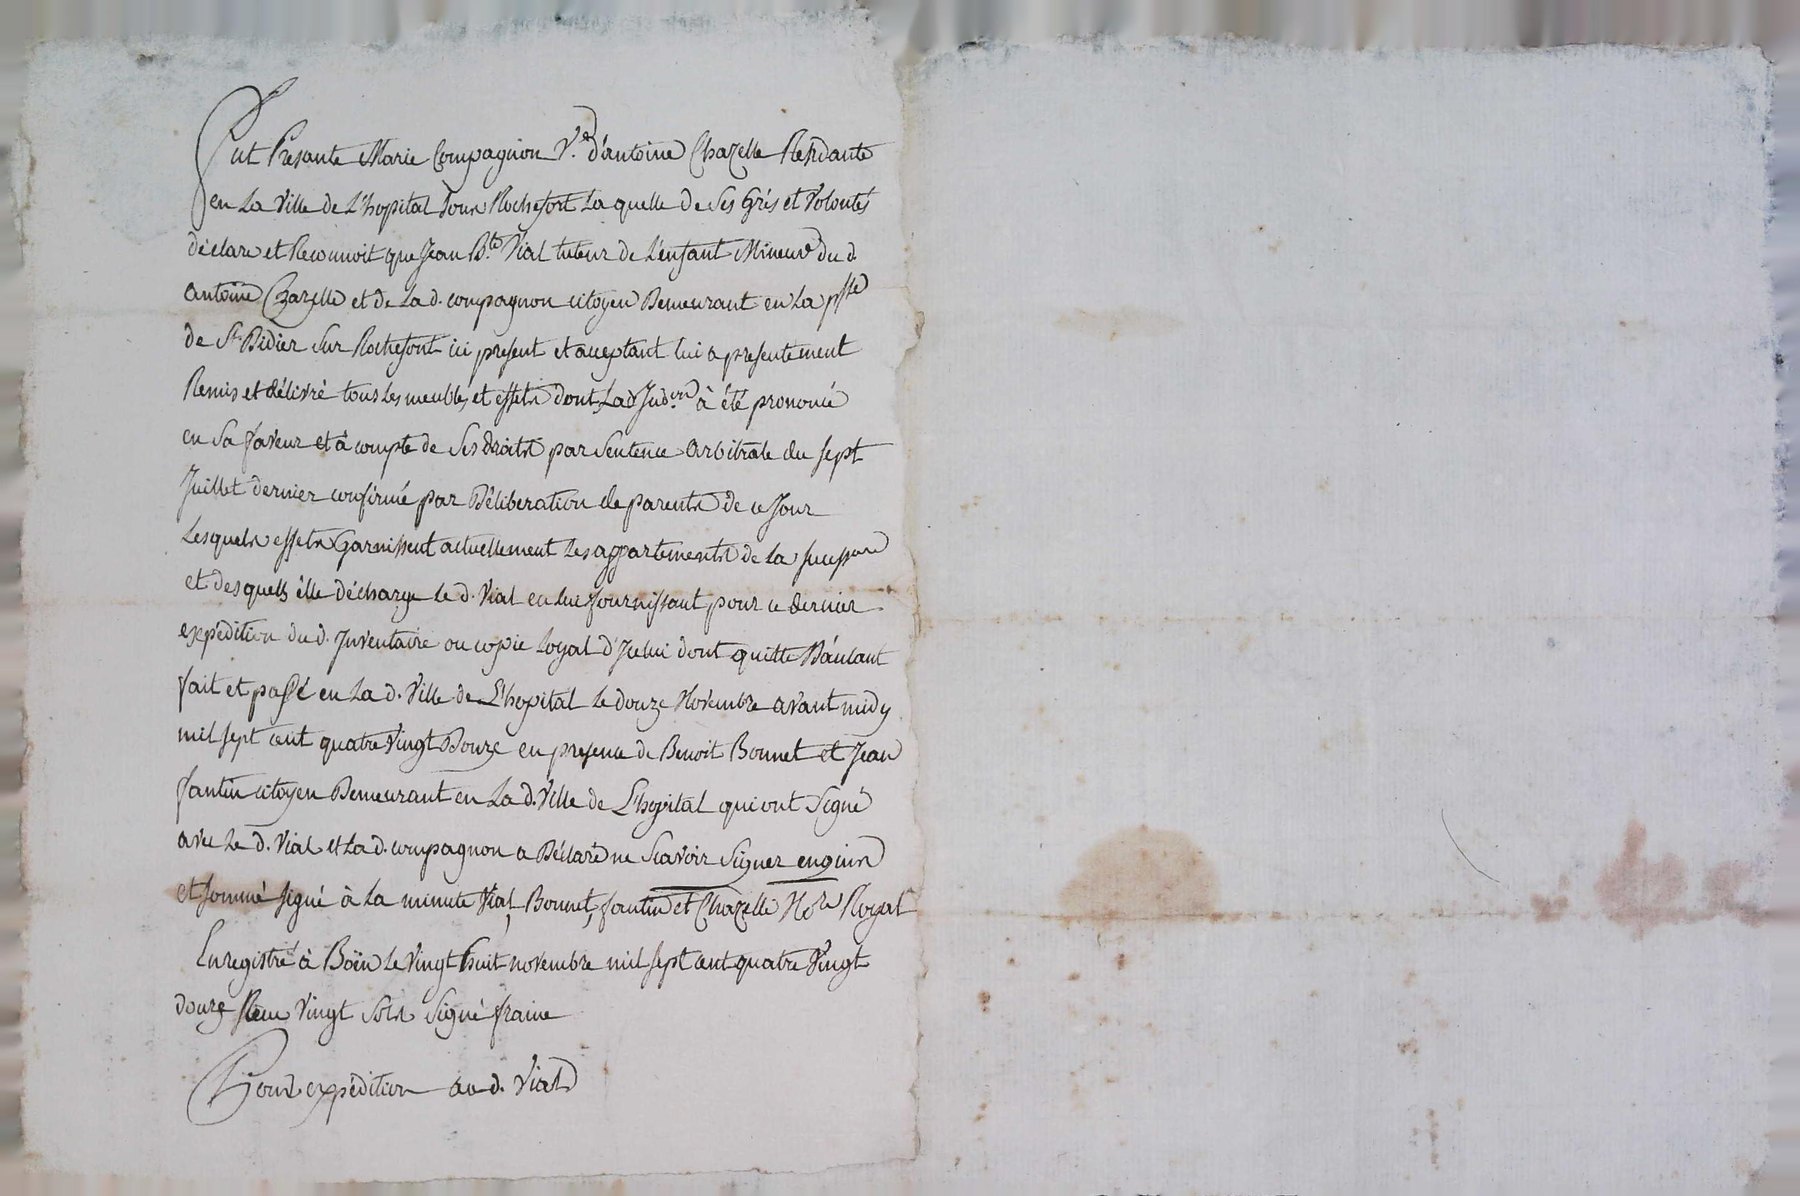 fut Presante Marie Compagnon V.e d'antoine Chazelle Residante
en La Ville de L'hopital sous Rochefort La quelle de Ses Grés et Volontés
déclare et Reconnoit que Jean B.te Vial tuteur de L'enfant Mineur du d.
antoine Chazelle et de La d. compagnon citoyen Demeurant en La psse
de St Didier Sur Rochefort ici present et acceptant lui a presentement
Remis et délivré tous Les meubles et effets dont Ladjud.on à été prononcé
en Sa faveur et à compte de Ses droits par Sentence Arbitrale du sept
Juillet dernier confirmé par Déliberation de parents de ce Jour
Lesquels effets Garnissent actuellement Les appartements de La
et desquels élle décharge Le d. Vial en Lui fournissant pour ce dernier
expédition du d. Inventaire ou copie Loyal d'Jcelui dont quitte
fait et passé en La d. Ville de L'hopital Le douze Novembre avant midy
mil sept cent quatre Vingt Douze en presence de Benoit Bonnet et Jean
fantin citoyen Demeurant en La d. Ville de L'hopital qui ont Signé
avec Le d. Vial et La d. compagnon a Déclaré ne Scavoir Signer enquis
et sommé signé à La minute Vial, Bonnet, fantin et Chazelle N.re Royal
Enregistré à Boën Le Vingt huit novembre mil sept cent quatre Vingt
douze Reçu Vingt Sols Signé fraine
Pour expédition au d. Vial